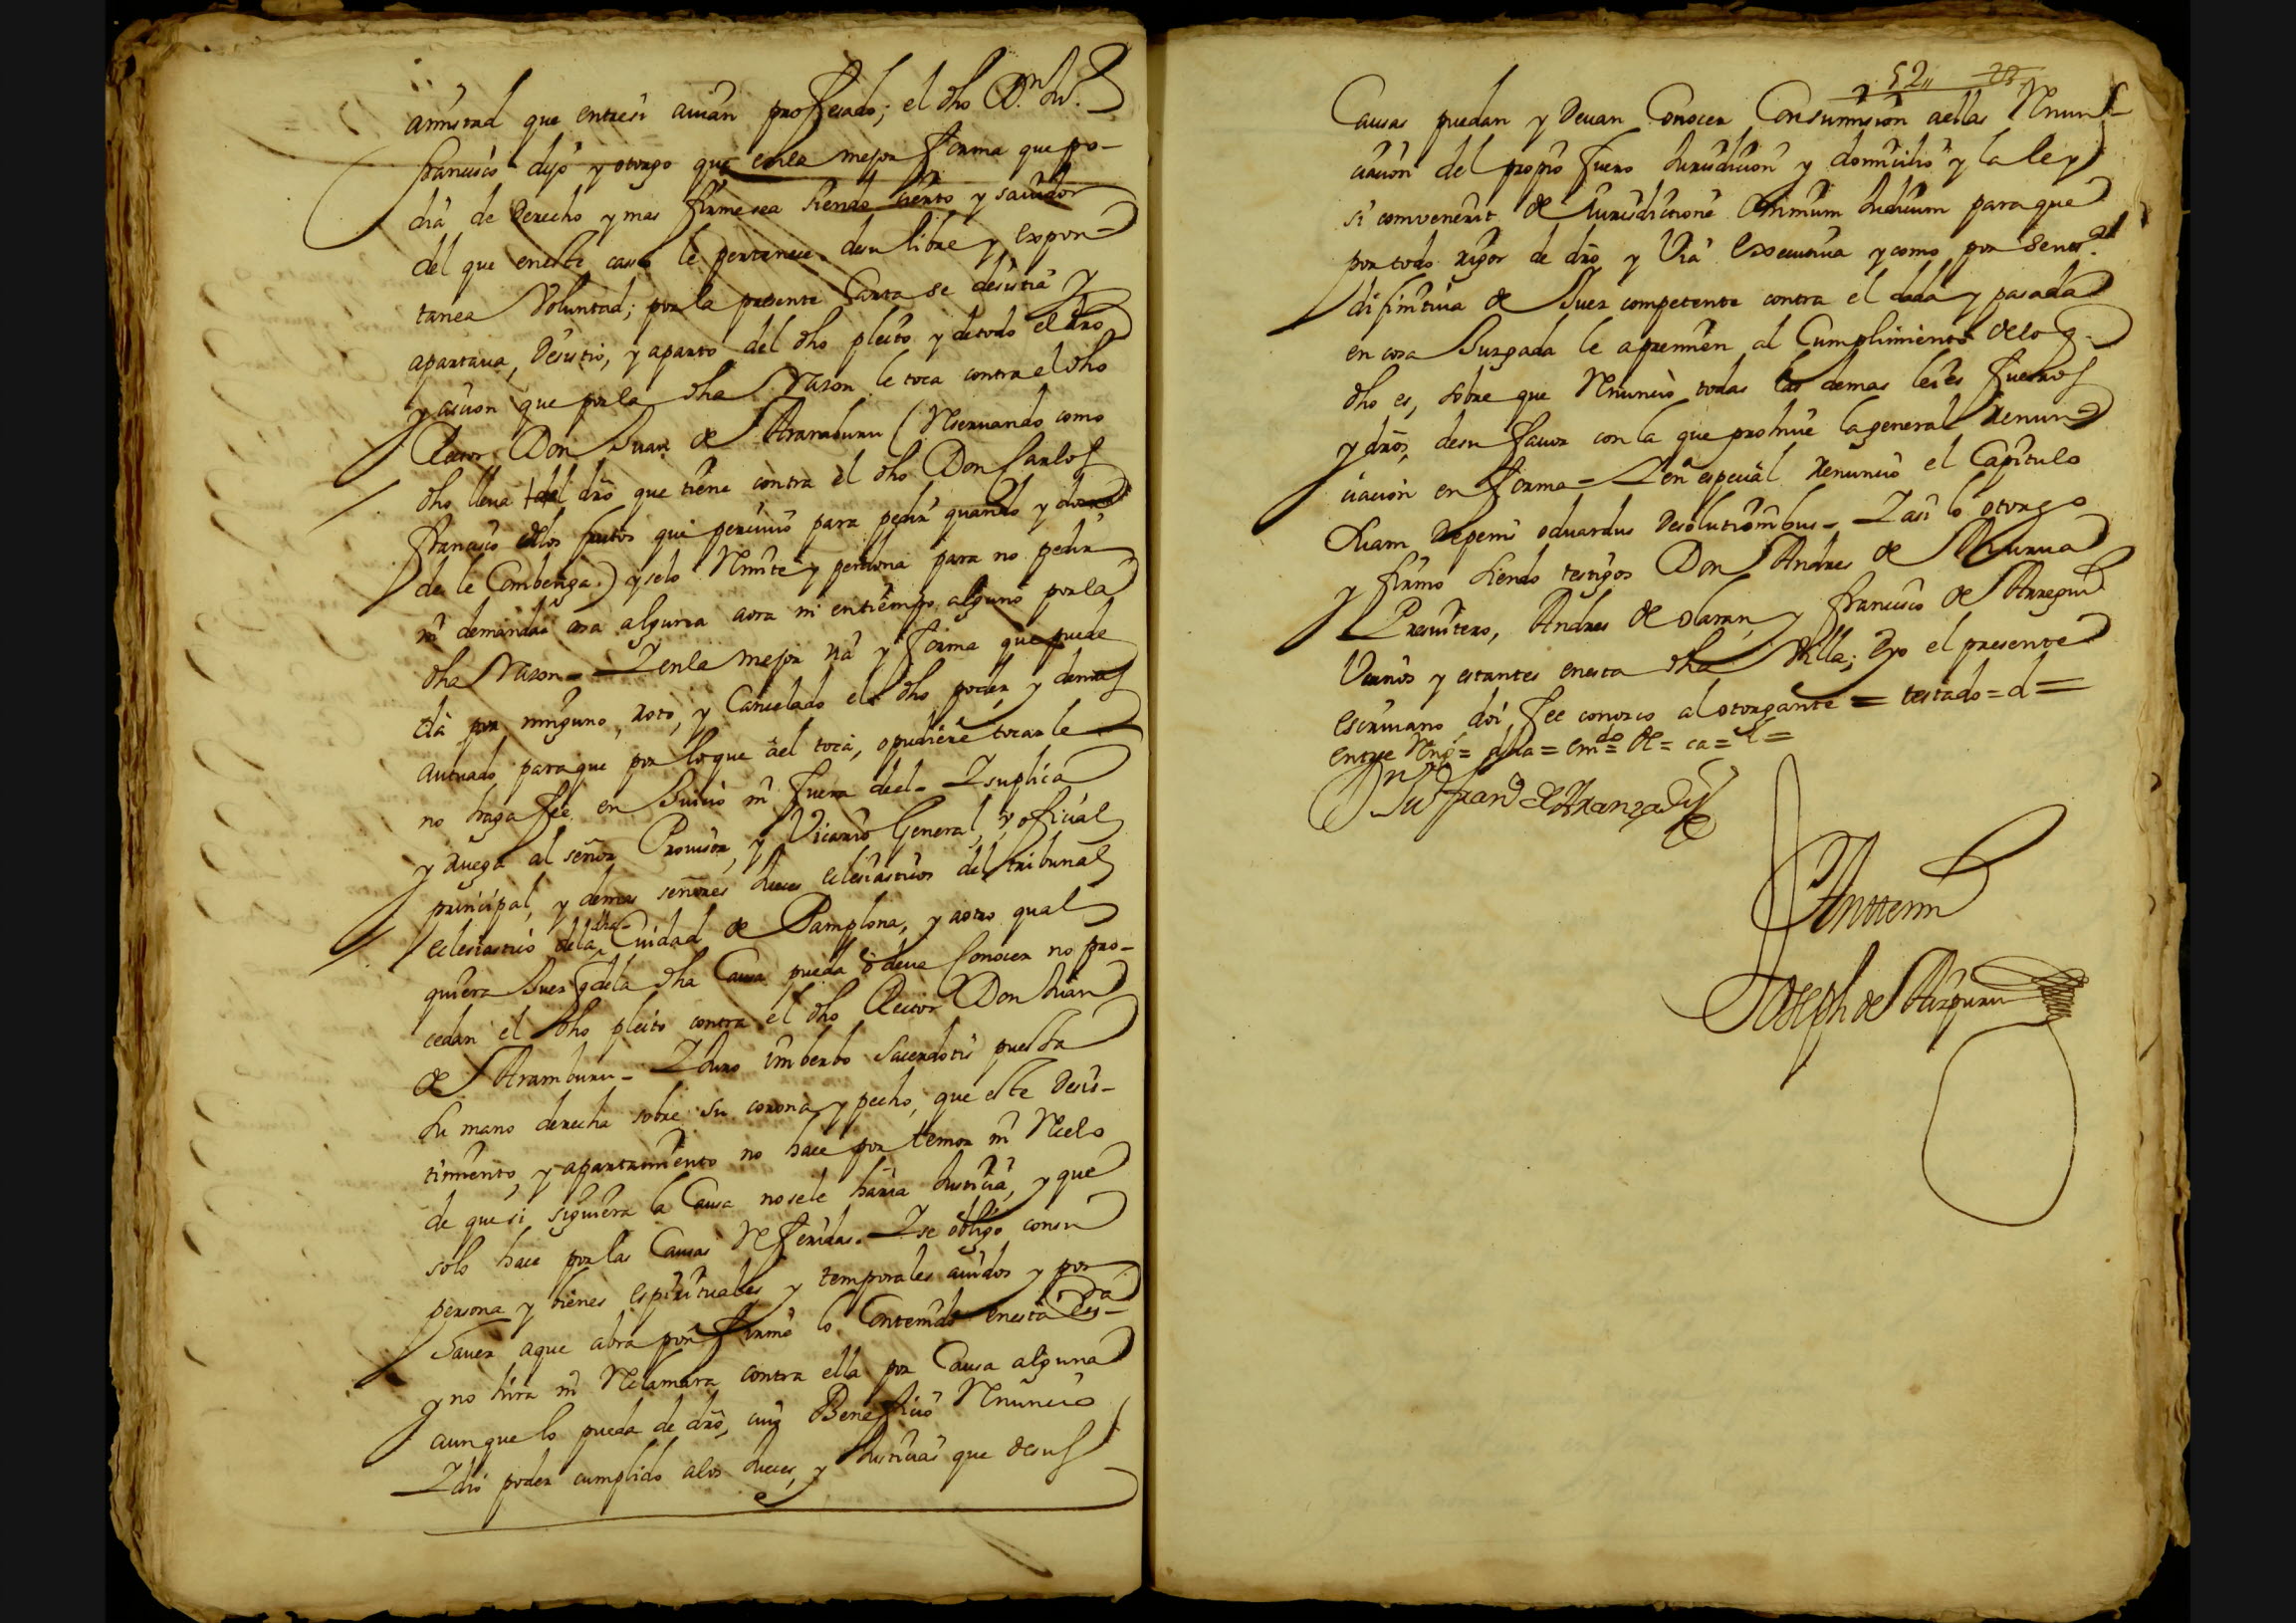 amistad que entresi auian proffesado; el dho D.n Ju.
francisco dijo y otorgo que enla mejor forma que po-
dia de derecho y mas firme sea siendo cierto y sauidor
del que eneste casso le pertenece desu libre y expon-
tanea Voluntad; por la presente Carta se desistia y
apartaua, desistio, y aparto del dho pleito y detodo el dro
y accion que por la dha Razon le toca contra el dho
Rector Don Juan de Aramburu (Reseruando como
dho lleua del dro que tiene contra el dho Don Carlos
francisco delos frutos que perciuio para pedir quando y don
de le Combenga) yselo Remite y perdona para no pedir
ni demandar cosa alguna aora ni entiempo alguno por la
dha Razon = Y enla mejor via y forma que puede
da por ninguno, roto, y Cancelado el dho poder, y demas
autuado paraque por loque ael toca, o pudiere tocarle
no haga fee en Juicio ni fuera deel = Y suplica
y ruega al señor Prouisor, y Vicario General, y oficial
principal, y demas señores Jueces eclesiasticos del tribunal
eclesiastico dela dha Ciudad de Pamplona, y aotro qual
quiera Juez q dela dha Causa pueda o deua Conocer no pro-
cedan el dho pleito contra el dho Rector Don Juan
de Aramburu = Y Juro in berbo sacerdotis puesta
su mano derecha sobre su corona y pecho, que este desis-
timiento, y apartamiento no hace por temor ni Recelo
de que si siguiera la Causa nosele haria Justicia, y que
solo hace por las Causas Referidas. Y se obligo consu
persona y bienes espirituales y temporales auidos y por
hauer aque abra por firme lo Contenido enesta es-ra
y no hira ni Reclamara contra ella por Causa alguna
aunque lo pueda de dro, cuio Beneficio Renuncio
Y dio poder cumplido alos Jueces, y Justicias que desus
52
Causas puedan y deuan Conocer Consumision aellas Renun-
ciacion del propio fuero Jurisdicion y domicilio y la ley
si comvenerit de Jurisdictione Omnium Judicum paraque
por todo rigor de dro y Via executiua y como por senta
difinitiua de Juez competente contra el dada y pasada
en cosa Juzgada le apremien al Cumplimiento delo q.
dho es, sobre que Renuncio todas las demas leies fueros
y dros, desu fauor con la que prohiue la general renun
ciacion en forma = Y en especial renuncio el Capitulo
Suam de penis oduardus desolutionibus = Y asi lo otorgo
y firmo siendo testigos Don Andres de
Presuitero, Andres de olaran, y francisco de Arregui
Vecinos y estantes enesta dha Villa; E yo el presente
escriuano doi fee conozco al otorgante = testado = d =
entre Reng = dha = emdo = de = ca =
Dn Ju fran
Anttemi
Joseph de Aizpuru